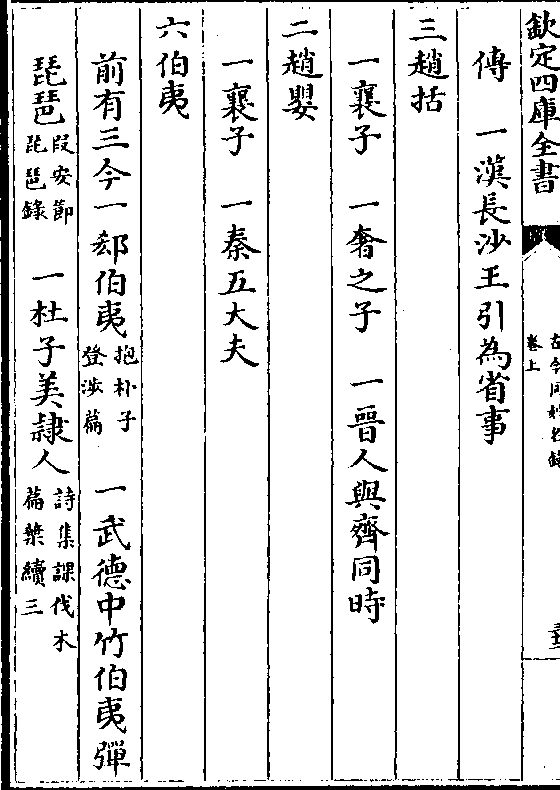 欽定四庫全書
古今同姓名錄
卷上
傳　一漢長沙王引為省事
三趙括
一襄子　一奢之子　一晉人與齊同時
二趙嬰
一襄子　一秦五大夫
六伯夷
前有三今一郄伯夷抱朴子登涉篇　一武德中竹伯夷彈
琵琶段安節琵琶錄　一杜子美隷人詩集課伐木篇槩續三